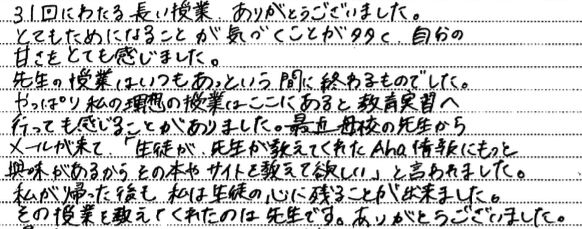 31回にわたる長い授業、ありがとうございました。
とてもためになること が 気づくことが多く、自分の
甘さもとても感じました。
先生の授業はいつもあっという間に終わるものでした。
やっぱり私の理想の授業はここにあると教育実習へ
行っても感じることがありました。最近母校の先生から
メールが来て、「生徒が、先生が教えてくれたAha情報にもっと
興味があるからその本やサイトを教えて欲しい」と言われました。
私が帰った後も私は生徒の心に残ることが出来ました。
その授業を教えてくれたのは先生です。ありがとうございました。